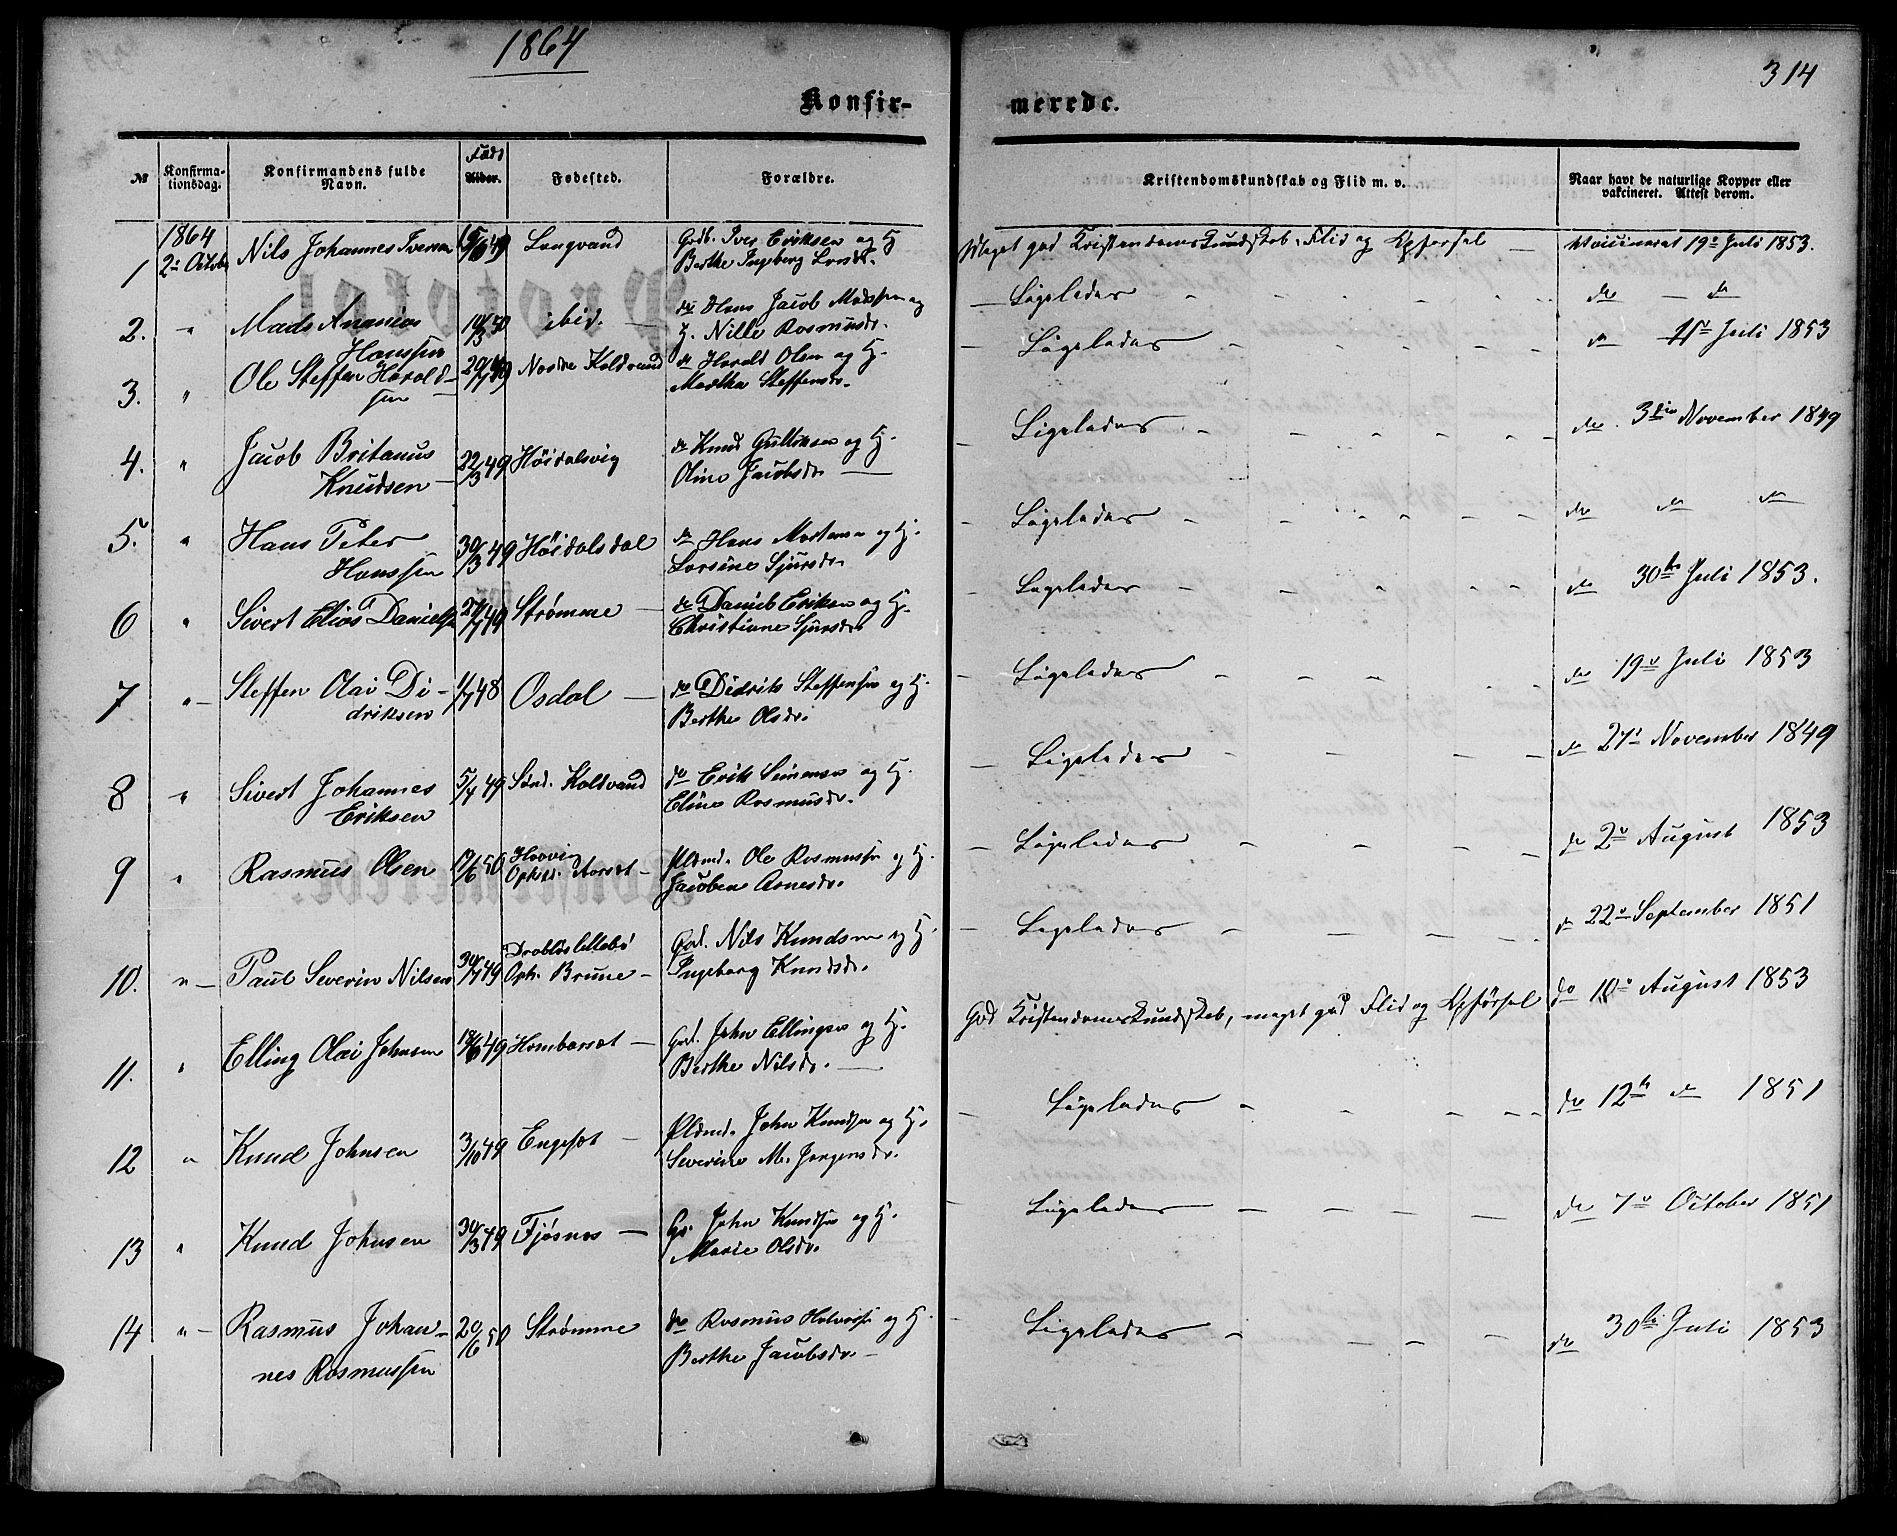 1864
314
Konfir-
merede.
№
Konfirma-
tionsdag.
Konfirmandens fulde
Navn.
Født
Alder.
Fødested.
Forældre.
Kristendomskundskab og Flid m. v.
Naar havt de naturlige Kopper eller
vakcineret. Attest derom.
1864
1 2: Octob. Nils Johannes Iversen Langvand Grdb. Iver Eriksen og H.
Berthe Ingeborg Larsd. Meget god Kristendomskundskab, Flid og Opførsel Vaccineret 19: Juli 1853.
2. " Mads Ananias
Hanssen 14/3 50 ibid. do Hans Jacob Madssen og
H. Nille Rasmusdr. Ligeledes do — do
3. " Ole Steffen Harald-
sen Nordre Koldvand do Harald Olsen og H.
Martha Steffensdr. Ligeledes do Juli 1853
4. " Jacob Britanus
Knudsen 22/3 49 Höidalsvig do Knud Gulliksen og H.
Oline Jacobsdr. Ligeledes do 3die November 1849
5. " Hans Peter
Hanssen 30/3 49 Höidalsdal do Hans Martinsen og H.
Larsine Sjursdr. Ligeledes do do do
6 " Sivert Elias Danielsen Strømme do Daniel Eriksen og H.
Christiane Sjursdr. Ligeledes do 30te Juli 1853.
7 " Steffen Olai Di-
driksen Osdal do Didrik Steffensen og H.
Berthe Olsdr. Ligeledes do 19de Juli 1853
8 " Sivert Johannes
Eriksen 5/4 49 Sönd. Koldvand do Erik Simensen og H.
Eline Rasmusdr. Ligeledes do 21: November 1849
9 " Rasmus Olsen
Aarset Pldsmd. Ole Rasmussen og H.
Jacobine Arnesdr. Ligeledes do 2de August 1853
10. " Paul Severin Nilsen
Opfr. Brune Grd. Nils Knudsen og H.
Ingeborg Knudsdr. Ligeledes do 22de September 1851
11. " Elling Olai Johnsen Hombarset Grd. John Ellingsen og H.
Berthe Nilsdr. God Kristendomskundskab, meget god Flid og Opførsel do 10: August 1853
12 " Knud Johnsen 3/10 49 Engeset Pldsmd. John Knudsen og H.
Severine M. Jørgensdr. Ligeledes do 12te do 1851
13 " Knud Johnsen 30/3 49 Fjøsnes Gr. John Knudsen og H.
Marie Olsdr. Ligeledes do 7de October 1851
14 " Rasmus Johan-
nes Rasmussen 20/6 50 Strømme do Rasmus Halvorsen og H.
Berthe Jacobsdr. Ligeledes do 30te Juli 1853